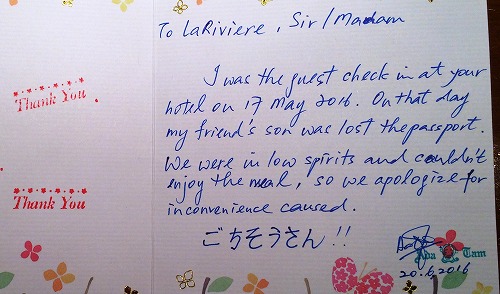 To LaRiviere, Sir/Madam
I was the guest check in at your
hotel on 17 May 2016. On that day
my friend's son was lost the passport.
We were in low spirits and couldn't
enjoy the meal, so we apologize for
inconvenience caused.
ごちそうさん!!
Ada Tam
20.6.2016
Thank You
Thank You